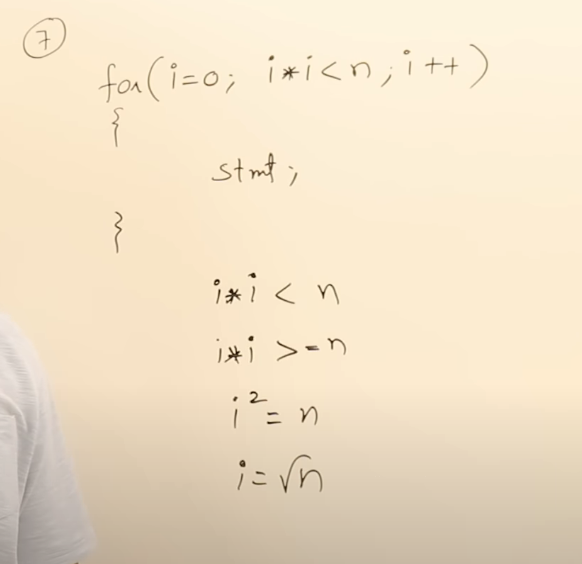 7
for(i=0; i*i<n; i++)
{
stmt;
}
i*i < n
i*i >=n
i² = n
i=√n